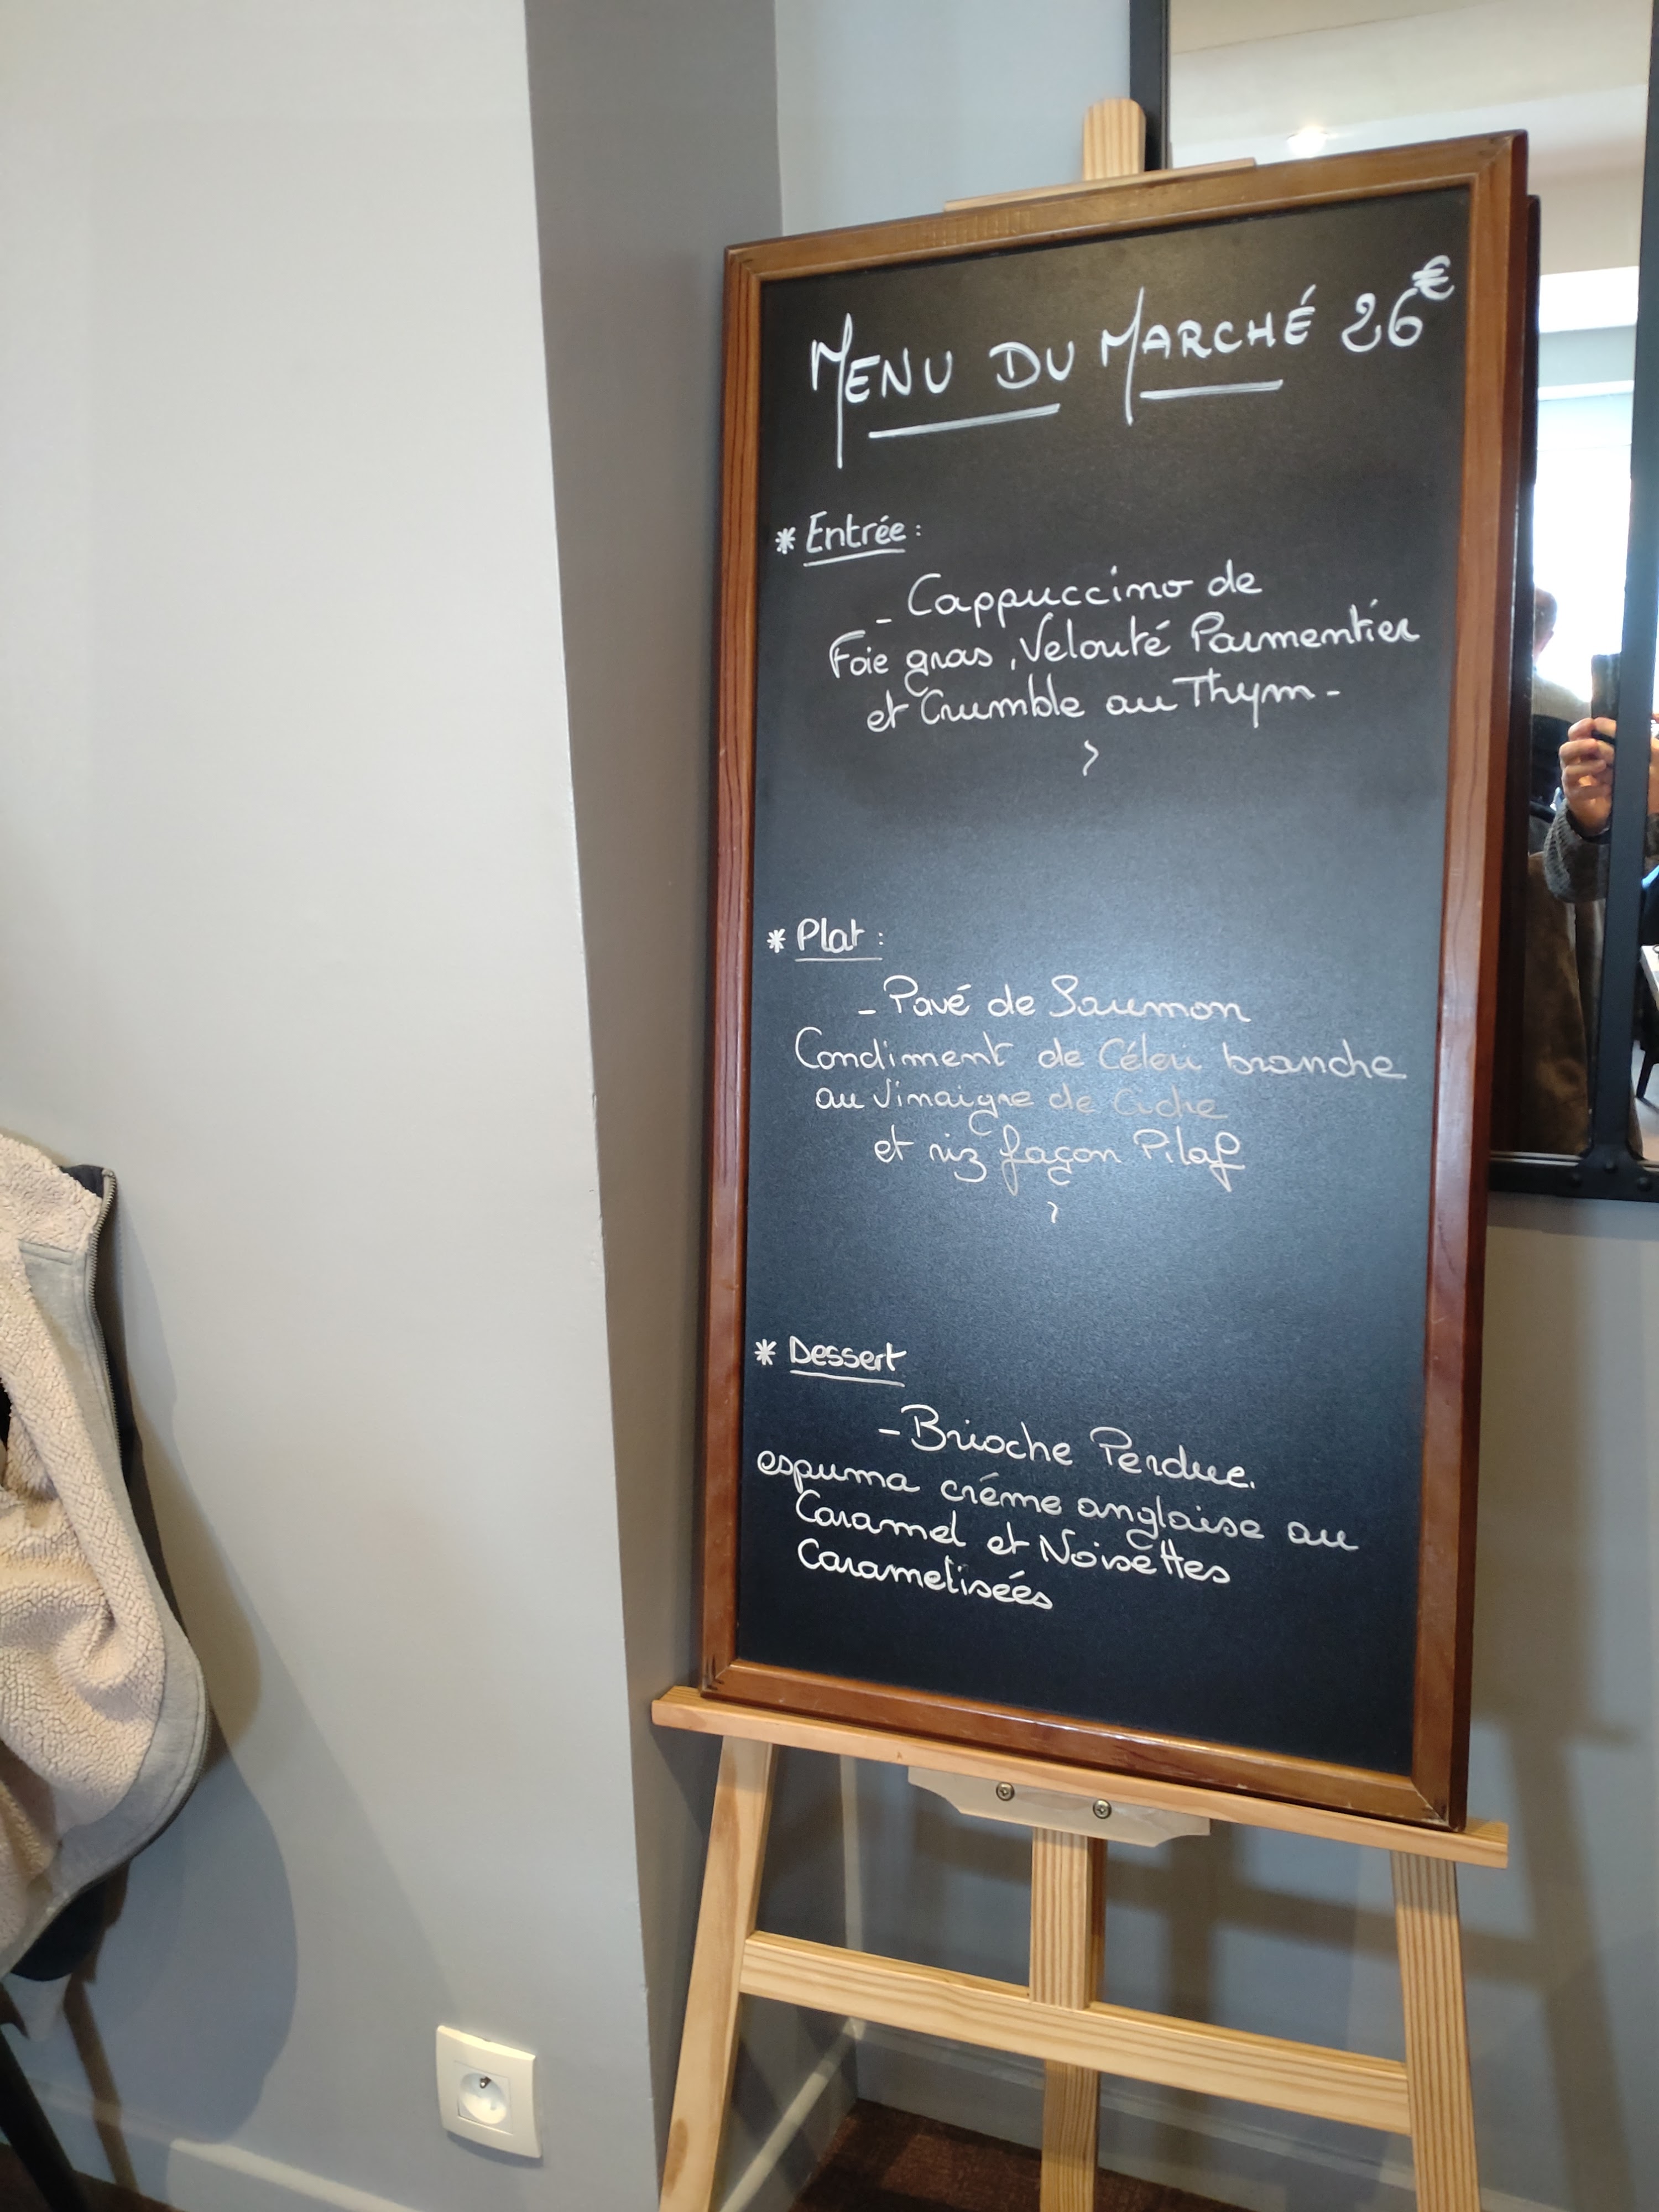 MENU DU MARCHÉ 26€
* Entrée :
- Cappuccino de
Foie gras, Velouté Parmentier
et Crumble au Thym -
* Plat :
- Pavé de Saumon
Condiment de Céleri branche
au Vinaigre de Cidre
et riz façon Pilaf
* Dessert
- Brioche Perdue.
espuma créme anglaise au
Caramel et Noisettes
Caramelisées